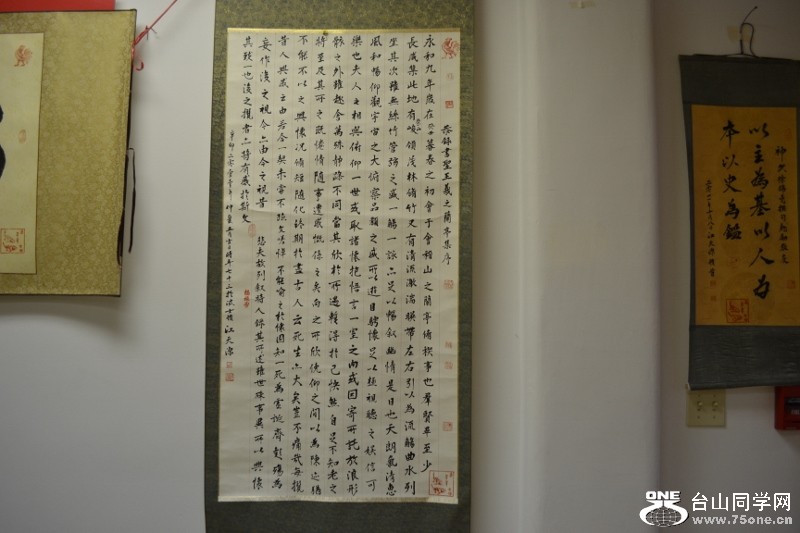 恭錄書聖王羲之蘭亭集序
永和九年歲在癸丑暮春之初會于會稽山之蘭亭脩稧事也羣賢畢至少
長咸集此地有崇山峻領茂林脩竹又有清流激湍暎帶左右引以為流觴曲水列
坐其次雖無絲竹管弦之盛一觴一詠亦足以暢敘幽情是日也天朗氣清惠
風和暢仰觀宇宙之大俯察品類之盛所以遊目騁懷足以極視聽之娛信可
樂也夫人之相與俯仰一世或取諸懷抱悟言一室之內或因寄所託放浪形
骸之外雖趣舍萬殊靜躁不同當其欣於所遇暫得於己快然自足不知老之
將至及其所之既惓情隨事遷感慨係之矣向之所欣俛仰之間以為陳迹猶
不能不以之興懷況脩短隨化終期於盡古人云死生亦大矣豈不痛哉每攬
昔人興感之由若合一契未嘗不臨文嗟悼不能喻之於懷固知一死為虛誕齊彭殤為
妄作後之視今亦由今之視昔 悲夫故列敘時人錄其所述雖世殊事異所以興懷
其致一也後之攬者亦將有感於斯文
以主為基以人为
本以史为鑑
ONE 台山同学网
www.75one.cn